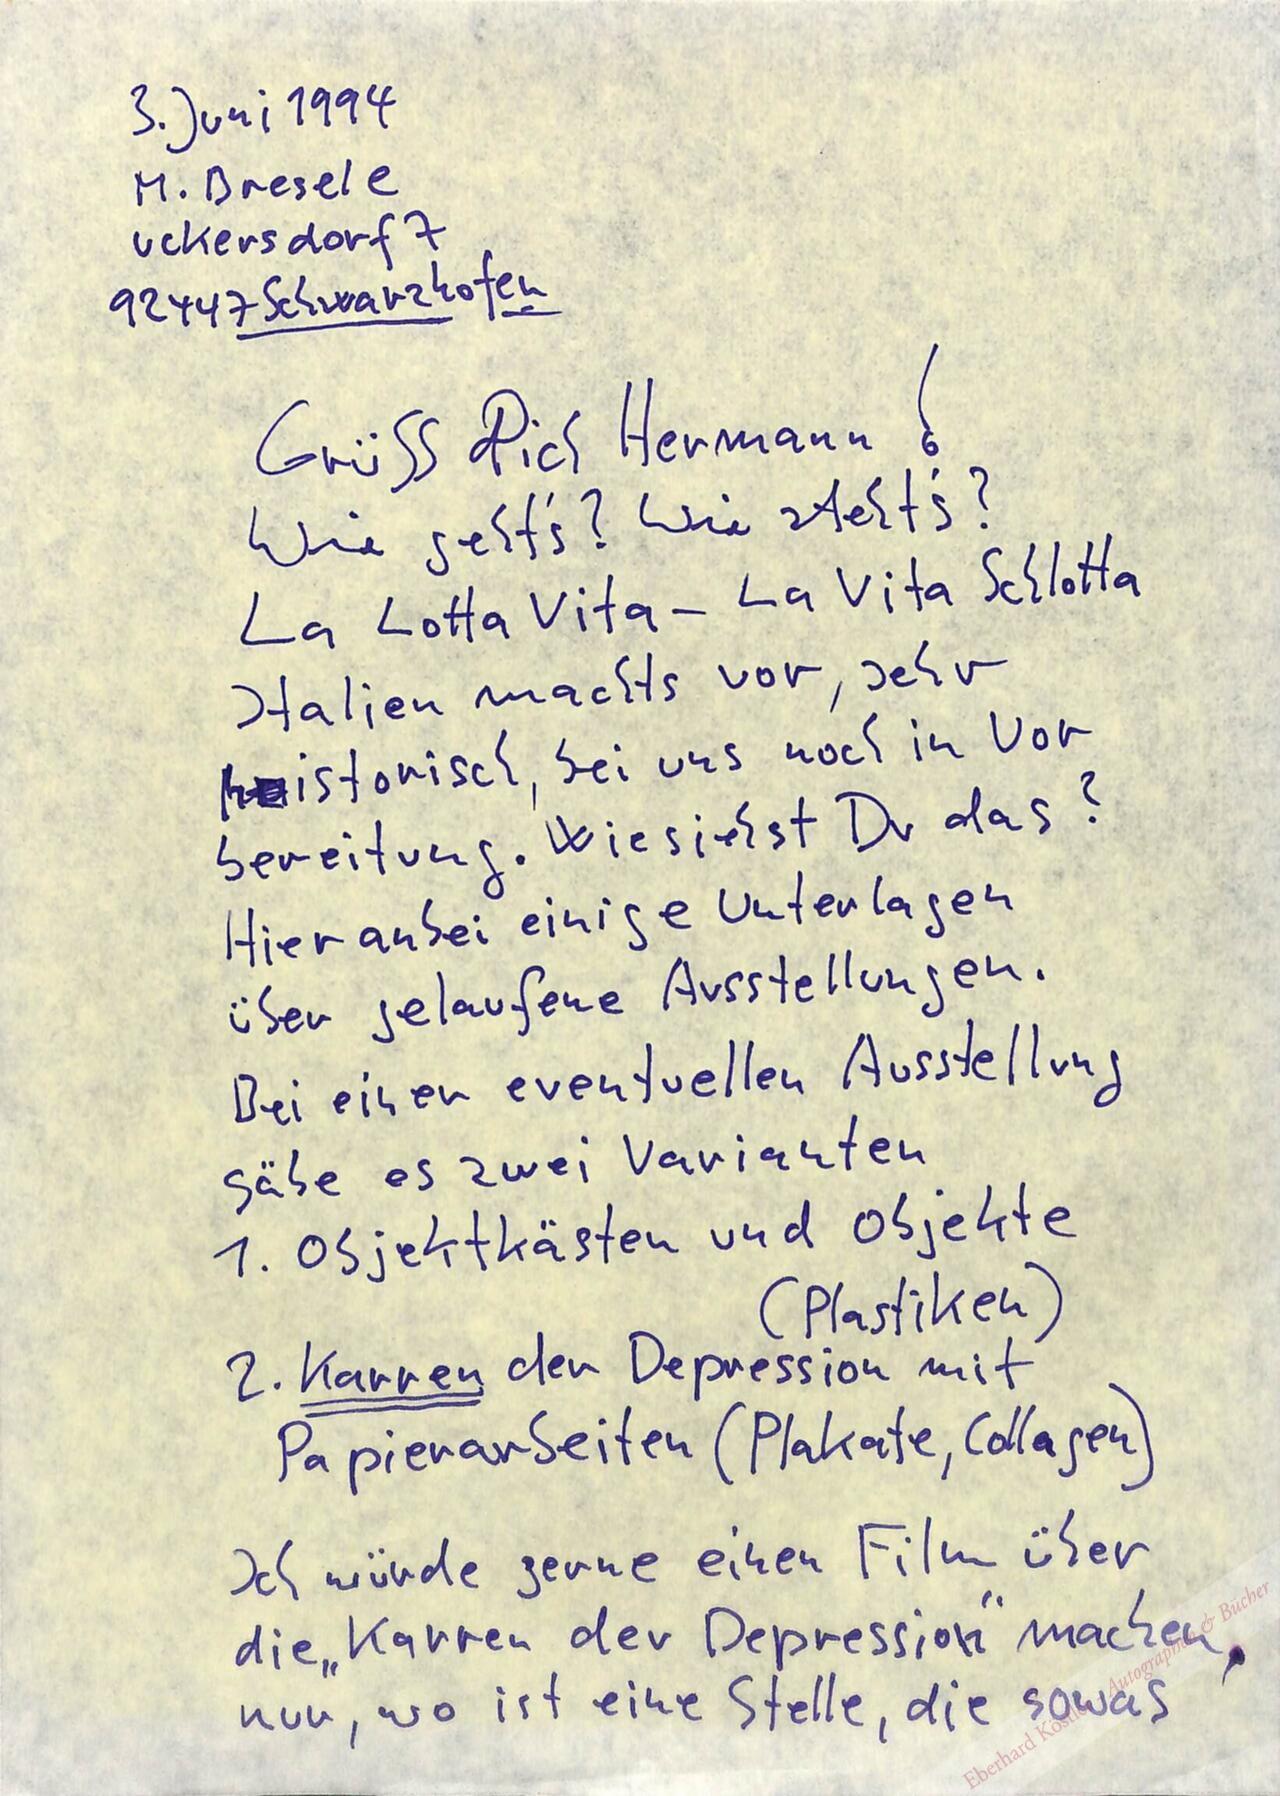 3. Juni 1994
M. Bresele
Uckersdorf 7
92447 Schwarzhofen
Grüss Dich Hermann!
Wie geht's? Wie steht's?
La Lotta Vita – La Vita Schlotta
Italien machts vor, sehr
historisch, bei uns noch in Vor
bereitung. Wie siehst Du das?
Hier anbei einige Unterlagen
über gelaufene Ausstellungen.
Bei einer eventuellen Ausstellung
gäbe es zwei Varianten
1. Objektkästen und Objekte
(Plastiken)
2. Karren der Depression mit
Papierarbeiten (Plakate, Collagen)
Ich würde gerne einen Film über
die „Karren der Depression" machen,
nun, wo ist eine Stelle, die sowas
Eberhard Köstler Autographen & Bücher